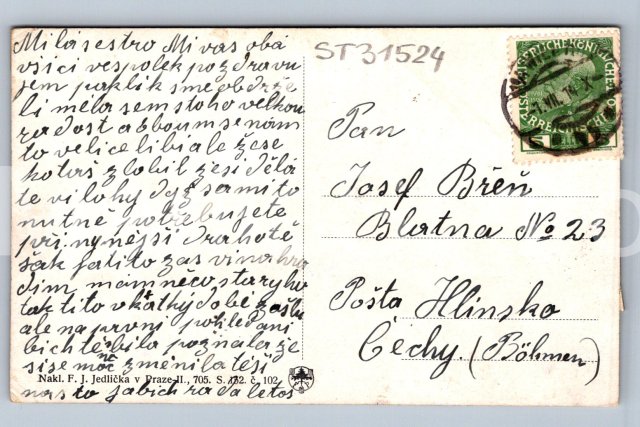 Milá sestro Mi vas oba
všici vespolek pozdravu
jem paklik sme obdrže
li měla sem stoho velkou
radost a bboum se nám
to velice libi ale že se
hotaš zlobil že si děla
te vilohy dyž sami to
nutne potřebujete
při nynější drahotě
šak ja ti to zas vinahra
dim, mam něco staryho
tak ti to v krátký době zašlu
ale na prvni pohledani
bich tě bila poznala že
si se moc změnila těší
nás to ja bich rada letos
ST31524
Pan
Josef Břéň
Blatna No 23
Pošta Hlinsko
Čechy (Böhmen)
Nakl. F. J. Jedlička v Praze-II., 705. S. 132. č. 102.